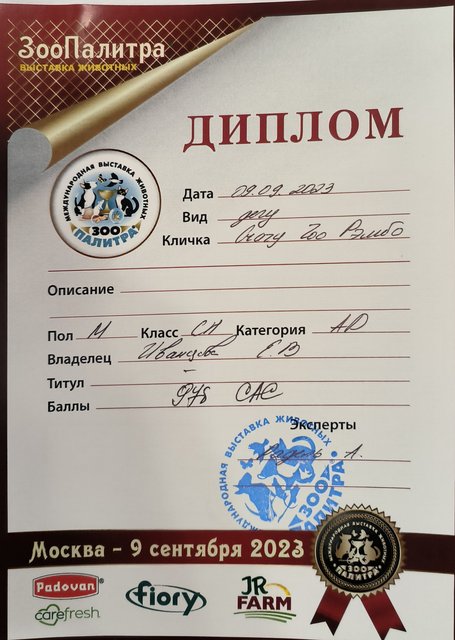 ЗооПалитра
ВЫСТАВКА ЖИВОТНЫХ
ДИПЛОМ
МЕЖДУНАРОДНАЯ ВЫСТАВКА ЖИВОТНЫХ
ЗОО
ПАЛИТРА
Дата 09.09.2023
Вид дегу
Кличка Зоо Рэмбо
Описание
Пол М Класс Категория
Владелец Е В
Титул -
Баллы САС
Эксперты
А.
МЕЖДУНАРОДНАЯ ВЫСТАВКА ЖИВОТНЫХ
ЗОО
ПАЛИТРА
Москва - 9 сентября 2023
ЗОО
ПАЛИТРА
Padovan
carefresh
fiory
JR
FARM